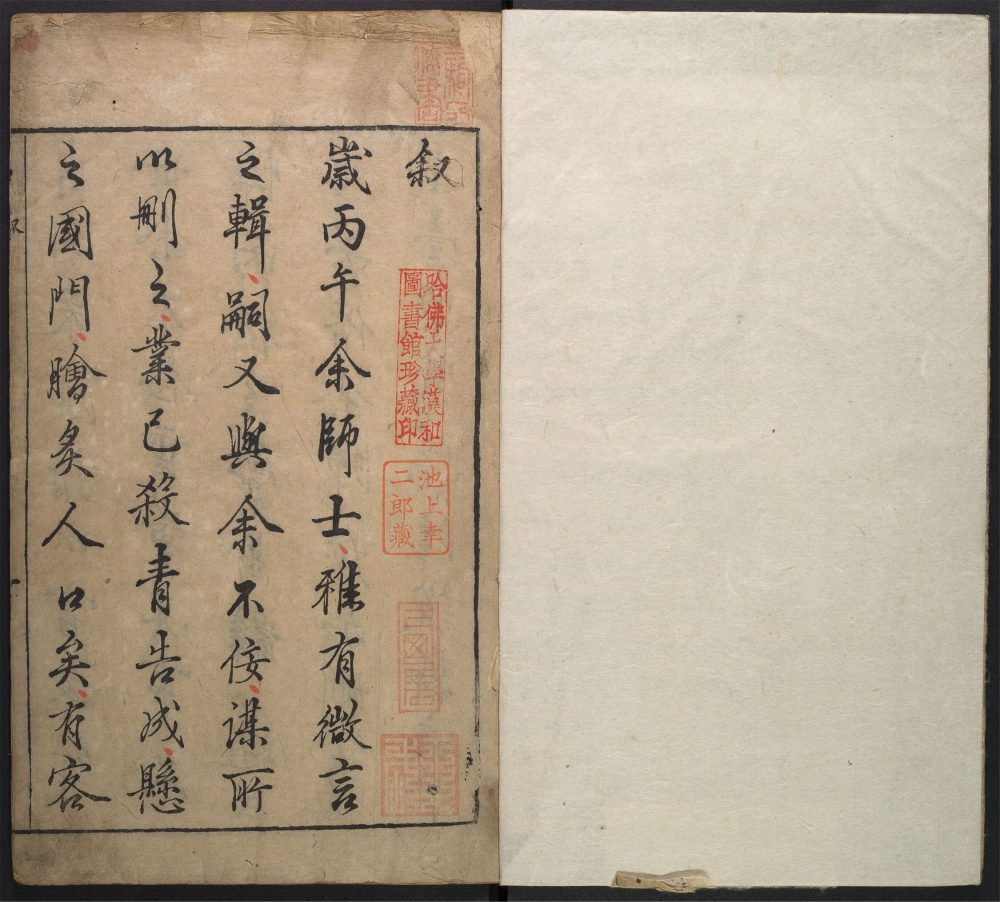 叙
歲丙午余師士雅有微言
之輯嗣又與余不佞謀所
以刪之業已殺青告成懸
之國門膾炙人口矣有客
哈佛大學漢和
圖書館珍藏印
池上幸
二郎藏